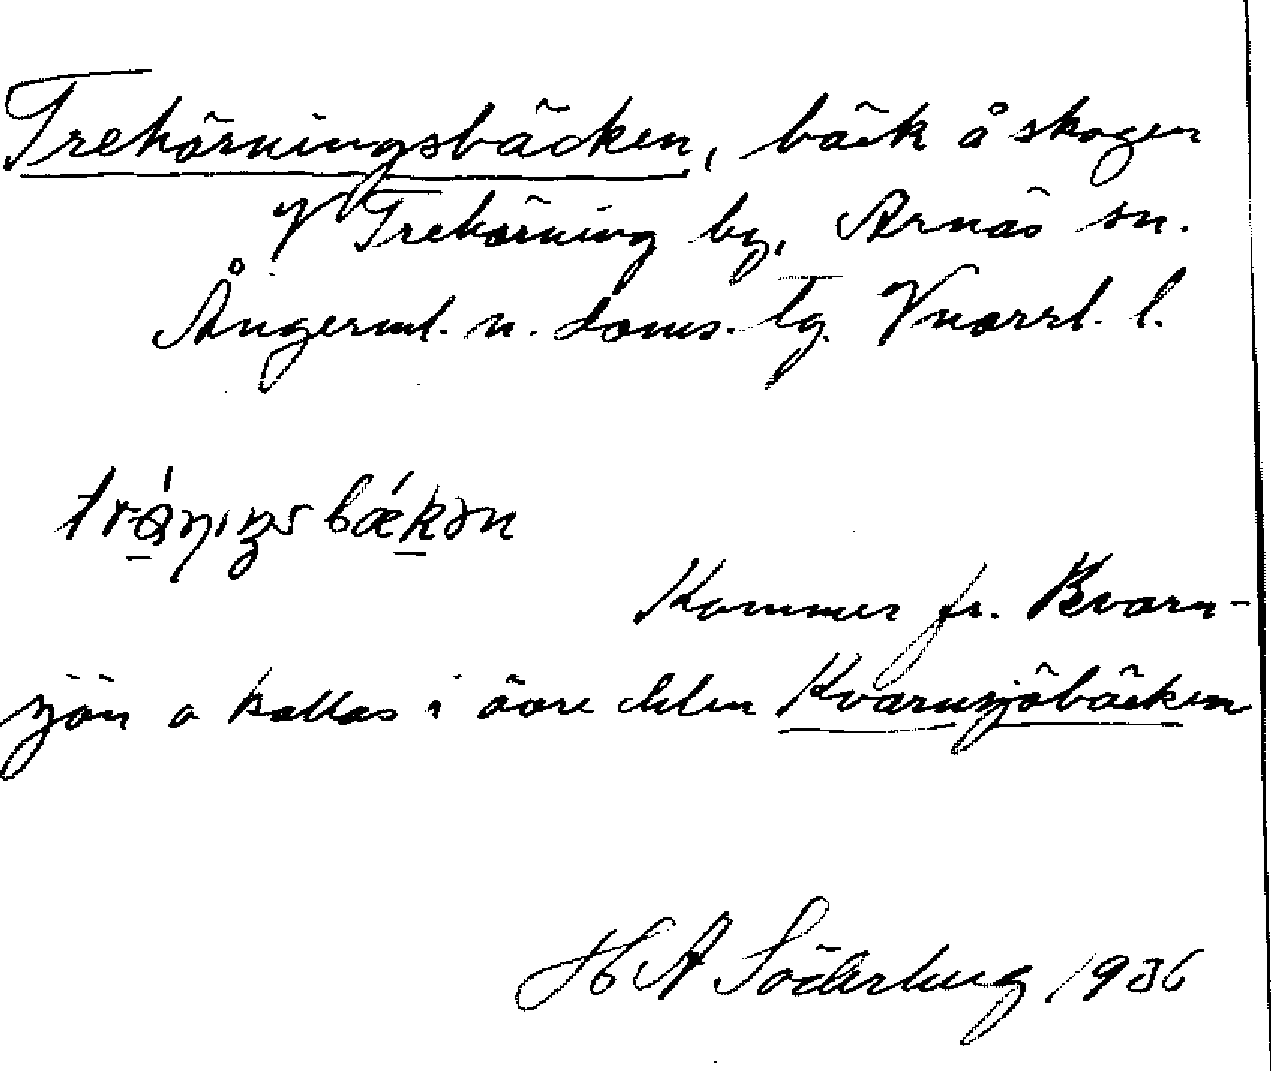 Trekörningsbäcken, bäck å skogen
V Trekörning by, Arnäs sn.
Ångerml. n. doms. tg. Vnorrl. l.
Kommer fr. Kvarn-
sjön o kallas i övre delen Kvarnsjöbäcken
H A Söderberg 1936